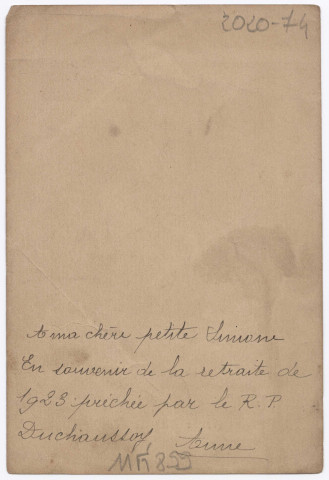 2020-74
A ma chère petite Simone
En souvenir de la retraite de
1923 prêchée par le R. P.
Duchaussoy Anne